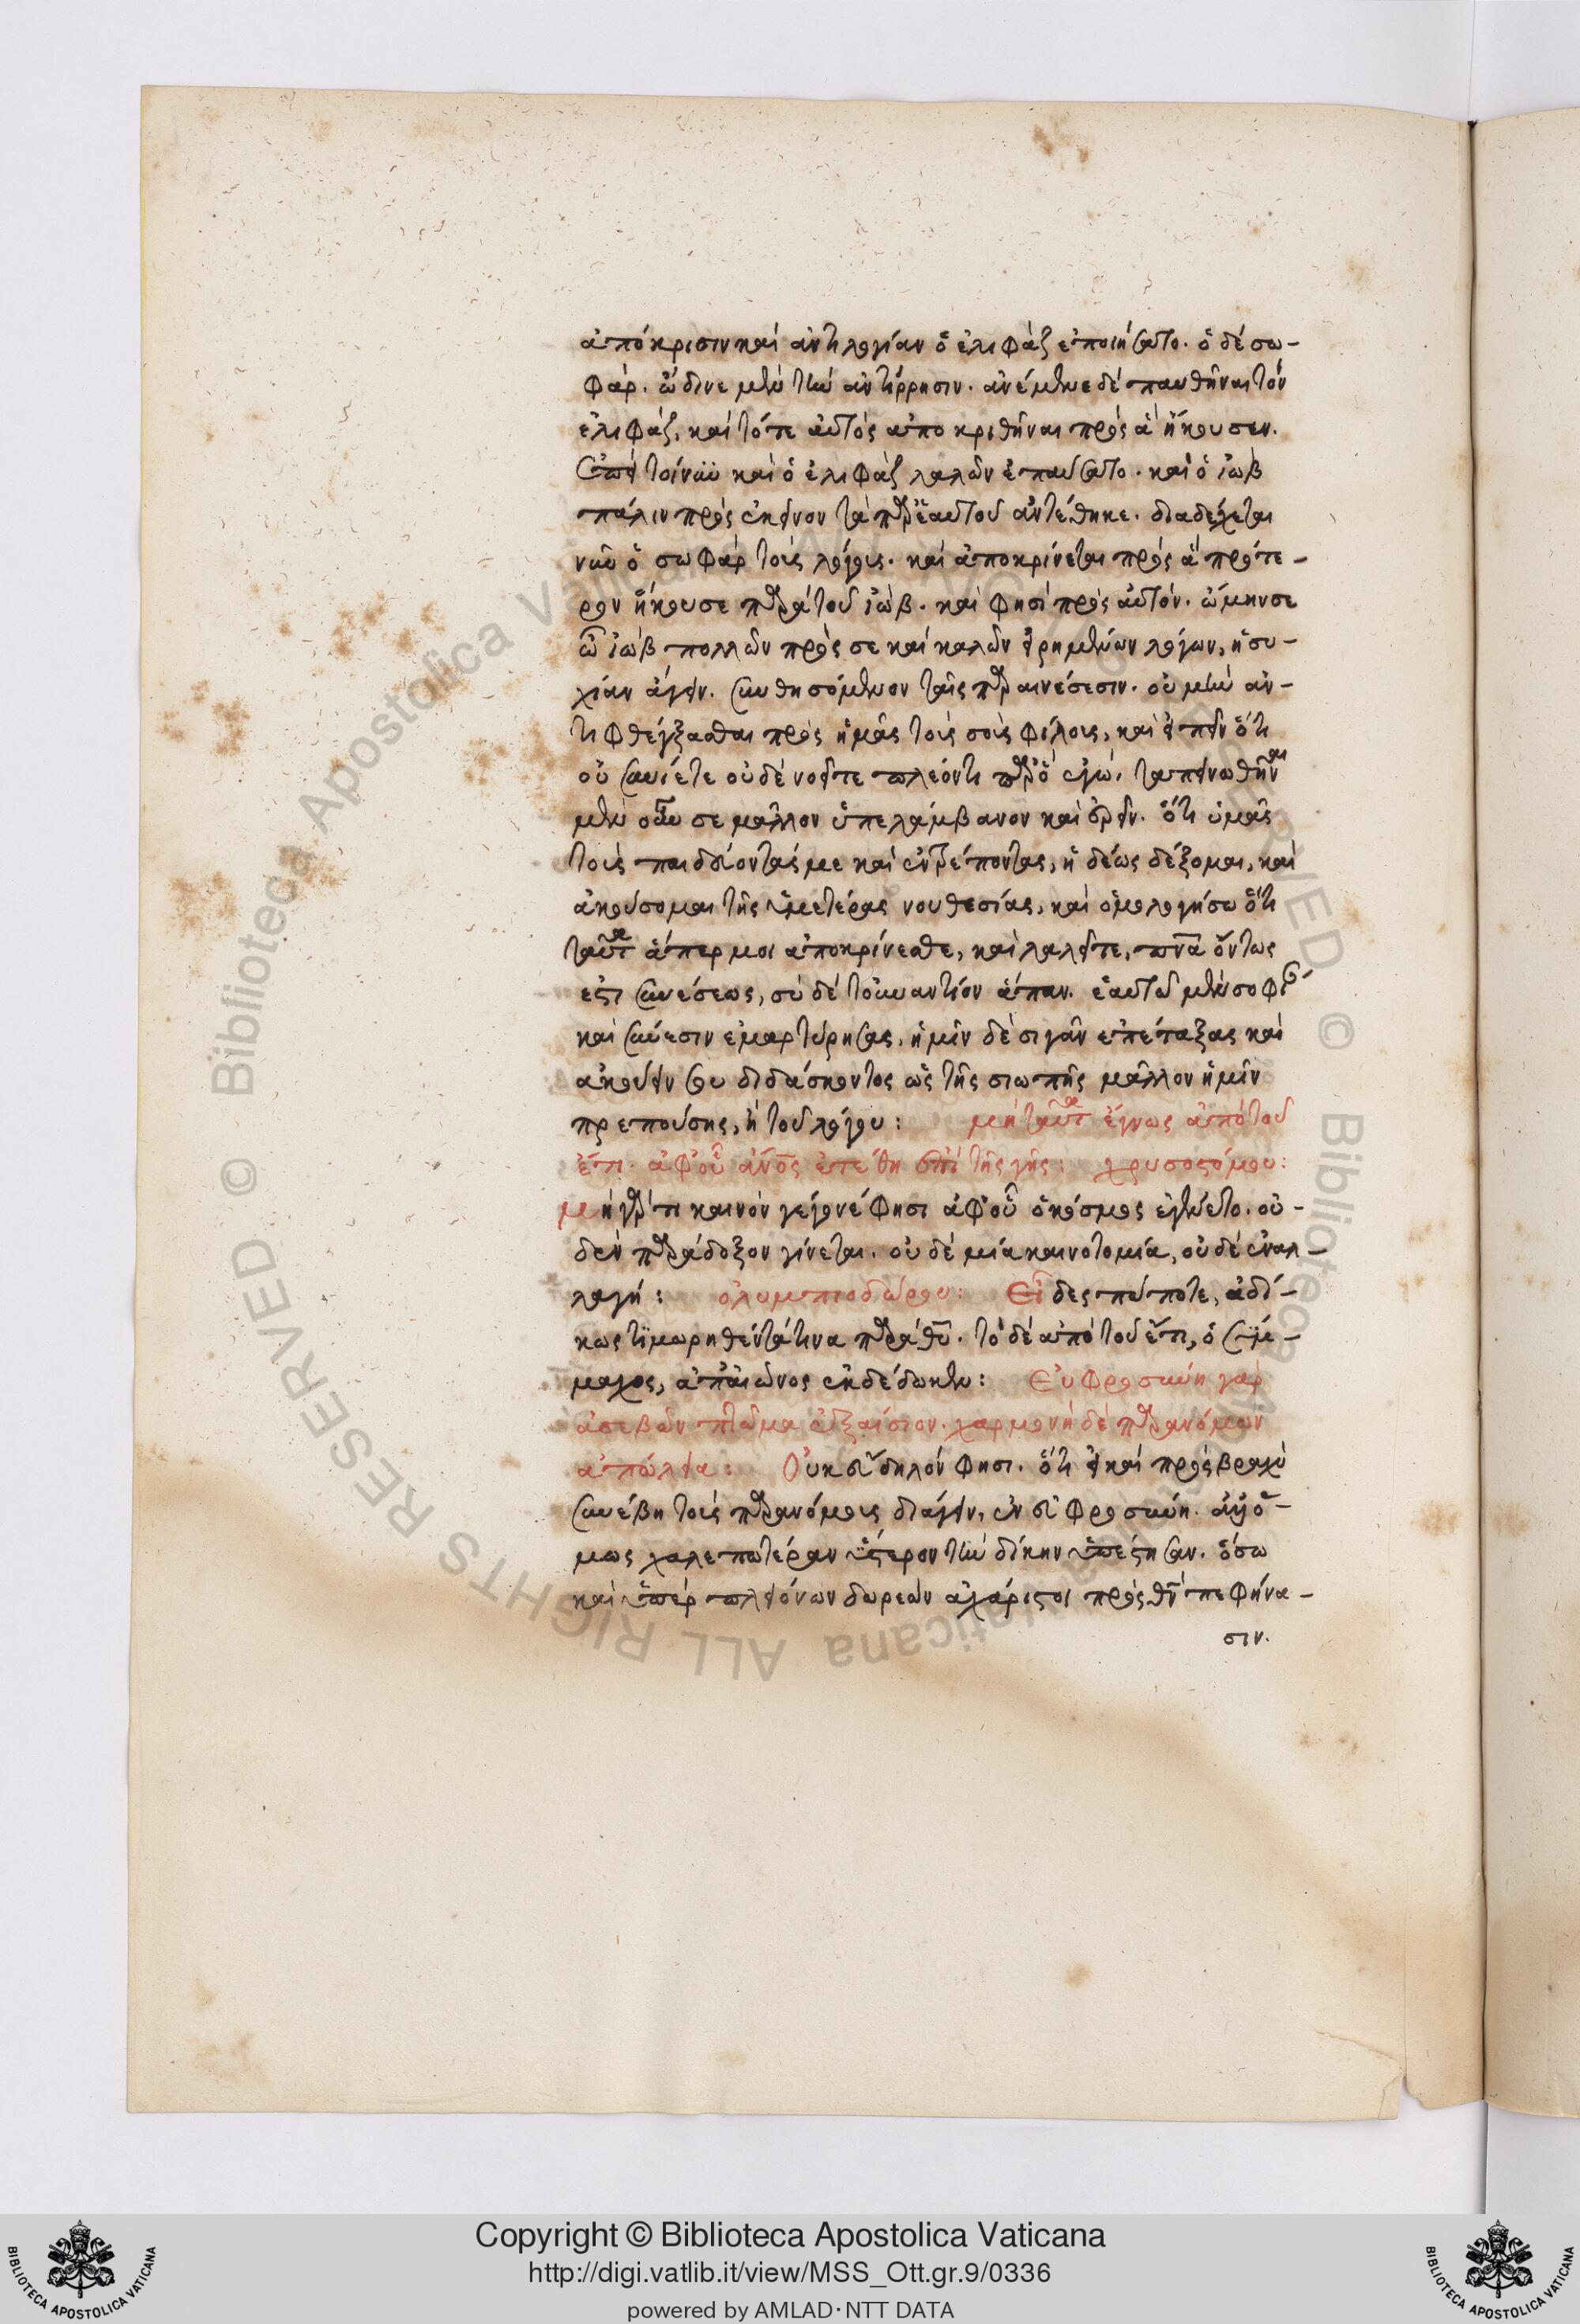 ἀπόκρισιν καὶ ἀντιλογίαν ὁ ἐλιφὰζ ἐποιήσατο. ὁ δέ σω-
φάρ. ὤδινε μὲν τὴν ἀντίρρησιν. ἀνέμενε δὲ παυθῆναι τὸν
ἐλιφάζ, καὶ τότε αὐτὸς ἀποκριθῆναι πρὸς ἃ ἤκουσεν.
ἐπεὶ τοίνυν καὶ ὁ ἐλιφὰζ λαλῶν ἐπαύσατο. καὶ ὁ ἰὼβ
πάλιν πρὸς ἐκεῖνον τὰ παρ' ἑαυτοῦ ἀντέθηκε. διαδέχεται
νῦν ὁ σωφὰρ τοὺς λόγους. καὶ ἀποκρίνεται πρὸς ἃ πρότε-
ρον ἤκουσε παρὰ τοῦ ἰώβ. καὶ φησὶ πρὸς αὐτόν. ᾤμην σε
ὦ ἰὼβ πολλῶν πρός σε καὶ καλῶν εἰρημένων λόγων, ἡσυ-
χίαν ἄγειν. συνθησόμενον ταῖς παραινέσεσιν. οὐ μὴν ἀν-
τιφθέγξασθαι πρὸς ἡμᾶς τοὺς σοὺς φίλους, καὶ εἰπεῖν ὅτι
οὐ συνίετε οὐδὲ νοεῖτε πλέον τι παρ' ὃ ἐγώ. ταπεινωθῆναι
μὲν οὖν σε μᾶλλον ὑπελάμβανον καὶ ἐρεῖν. ὅτι ὑμᾶς
τοὺς παιδεύοντάς με καὶ ἐντρέποντας, ἡδέως δέξομαι, καὶ
ἀκούσομαι τῆς ὑμετέρας νουθεσίας, καὶ ὁμολογήσω ὅτι
ταῦτα ἅπερ μοι ἀποκρίνεσθε, καὶ λαλεῖτε, πνα ὄντως
ἐστι συνέσεως, σὺ δὲ τοὐναντίον ἅπαν. ἑαυτῷ μὲν σοφί
καὶ σύνεσιν ἐμαρτύρησας, ἡμῖν δὲ σιγᾶν ἐπέταξας καὶ
ἀκούειν σου διδάσκοντος ὡς τῆς σιωπῆς μᾶλλον ἡμῖν
πρεπούσης, ἢ τοῦ λόγου: μὴ ταῦτα ἔγνως ἀπὸ τοῦ
ἔτι. ἀφ' οὗ ἀνος ἐτέθη ἐπὶ τῆς γῆς: χρυσοστόμου:
μὴ γάρ τι καινὸν γέγονέ φησι ἀφ' οὗ ὁ κόσμος ἐγένετο. οὐ-
δὲν παράδοξον γίνεται. οὐδὲ μία καινοτομία, οὐδὲ ἐναλ-
λαγή: ὀλυμπιοδώρου: Εἶδες πώποτε, ἀδί-
κως τιμωρηθέντα τινα παρὰ θυ. τὸ δὲ ἀπὸ τοῦ ἔτι, ὁ σύμ-
μαχος, ἀπ' αἰῶνος ἐκδέδωκεν: Εὐφροσύνη γὰρ
ἀσεβῶν πτῶμα ἐξαίσιον. χαρμονὴ δὲ παρανόμων
ἀπώλεια: Οὐκ εὔδηλόν φησι. ὅτι εἰ καὶ πρὸς βραχὺ
συνέβη τοὺς παρανόμους διάγειν, ἐν εὐφροσύνη. ἀλλ' ὅ-
μως χαλεπωτέραν ὕστερον τὴν δίκην ὑπέστησαν. ὅσω
καὶ ὑπὲρ πλειόνων δωρεῶν ἀχάριστοι πρὸς θν πεφήνα-
σιν.
Copyright © Biblioteca Apostolica Vaticana
http://digi.vatlib.it/view/MSS_Ott.gr.9/0336
powered by AMLAD·NTT DATA